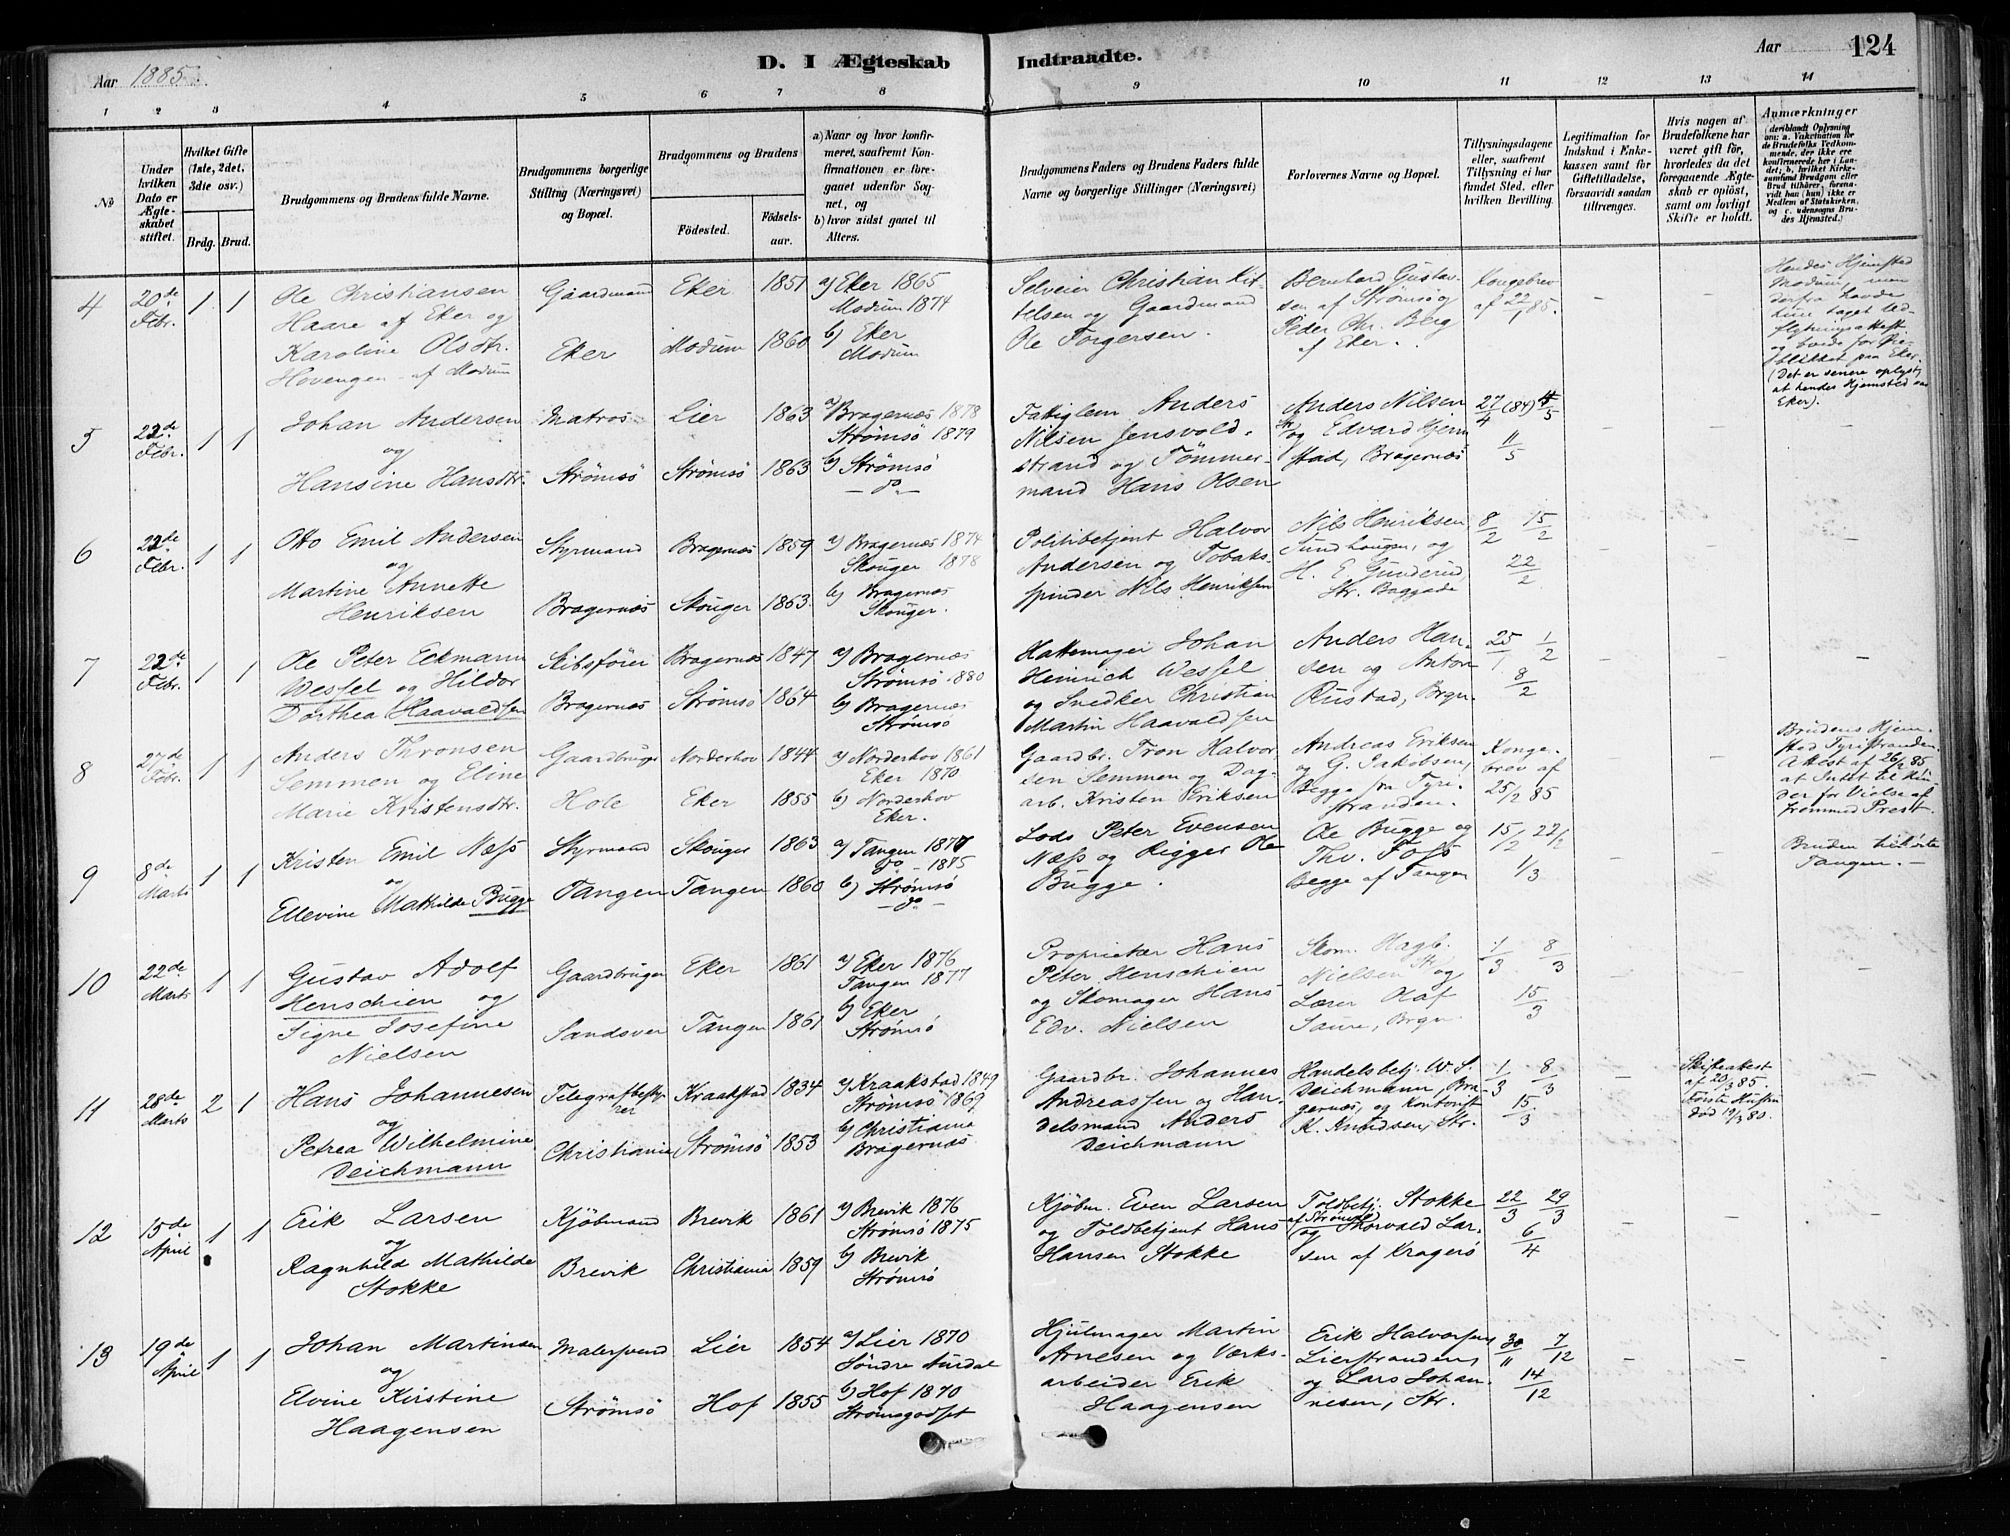 Aar 1885.
D. I Ægteskab Indtraadte.
Aar 124
1 2 3 4 5 6 7 8 9 10 11 12 13 14
No
Under hvilken Dato er Ægteskabet stiftet.
Hvilket Gifte (1ste, 2det, 3die osv.)
Brdg. Brud.
Brudgommens og Brudens fulde Navne.
Brudgommens borgerlige Stilling (Næringsvei) og Bopæl.
Brudgommens og Brudens
Födested. Födselsaar.
a) Naar og hvor konfirmeret, saafremt Konfirmationen er foregaaet udenfor Sognet, og
b) hvor sidst gaaet til Alters.
Brudgommens Faders og Brudens Faders fulde Navne og borgerlige Stillinger (Næringsvei)
Forlovernes Navne og Bopæl.
Tillysningsdagene eller, saafremt Tillysning ei har fundet Sted, efter hvilken Bevilling.
Legitimation for Indskud i Enkekassen samt for Giftetilladelse, forsaavidt saadan tiltrænges.
Hvis nogen af Brudefolkene har været gift för, hvorledes da det foregaaende Ægteskab er oplöst, samt om lovligt Skifte er holdt.
Anmærkninger (deriblandt Oplysning om: a. Vakcination for de Brudefolks Vedkommende, der ikke ere konfirmerede her i Landet; b. hvilket Kirkesamfund Brudgom eller Brud tilhörer, forsaavidt han (hun) ikke er Medlem af Statskirken, og c. udensogns Brudes Hjemsted.)
4 20de Febr. 1 1 Ole Christiansen Haare af Eker og Karoline Olsdtr. Hovengen af Modum
Gaardmand Eker
Eker 1851
Modum 1860
a) Eker 1865 Modum 1874
b) Eker Modum
Selveier Christian Kittelsen og Gaardmand Ole Torgersen.
Bernhard Gustavsen af Strømsø og Peder Chr. Berg af Eker.
Kongebrev af 22/1 85.
- -
Hendes Hjemsted Modum, men derfra havde hun taget Udflytningsattest og boede for Øieblikket paa Eker. (Det er senere oplyst, at hendes Hjemsted var Eker).
5 22de Febr. 1 1 Johan Andersen og Hansine Hansdtr.
Matros Strömsö
Lier 1863
Strömsö 1863
a) Bragernæs 1878 Strömsö 1879
b) Strömsö - do -
Fattiglem Anders Nilsen Jensvoldstrand og Tömmermand Hans Olsen
Anders Nilsen Str. og Edvard Hjermstad, Bragernæs
27/4 (84) 4/5 11/5
6 22de Febr. 1 1 Otto Emil Andersen og Martine Annette Henriksen
Styrmand Bragernæs
Bragernæs 1859
Skouger 1863.
a) Bragernæs 1874 Skouger 1878
b) Bragernæs Skouger.
Politibetjent Halvor Andersen og Tobaksspinder Nils Henriksen
Nils Henriksen Sundhaugen, og H. E. Gunderud, Str. Baggade
8/2 15/2 22/2
7 22de Febr. 1 1 Ole Peter Eckmann Wessel og Hildor Dorthea Haavaldsen
Skibsförer Bragernæs
Bragernæs 1847
Strömsö 1864
a) Bragernæs Strömsö 1880
b) Bragernæs Strömsö
Hattemager Johan Heinrich Wessel og Snedker Christian Martin Haavaldsen
Anders Hansen og Anton Rustad, Brgn.
25/1 1/2 8/2
8 27de Febr. 1 1 Anders Thronsen Semmen og Eline Marie Kristensdtr.
Gaardbruger Hole
Norderhov 1844
Eker 1855
a) Norderhov 1861 Eker 1870
b) Norderhov Eker.
Gaardbr. Tron Halvorsen Semmen og Dagarb. Kristen Eriksen
Andreas Eriksen og G. Jakobsen, Begge fra Tyristranden.
Kongebrev af 25/2 85
Brudens Hjemsted Tyristranden. Attest af 26/2 85 at Intet til Hinder for Vielse af fremmed Prest.
9 8de Marts 1 1 Kristen Emil Næss og Ellevine Mathilde Bugge
Styrmand Tangen
Skouger 1863
Tangen 1860
a) Tangen 1877 do - 1875
b) Strömsö - do -
Lods Peter Evensen Næss og Rigger Ole Bugge.
Ole Bugge og Thv. Foss Begge af Tangen
15/2 22/2 1/3
Bruden tilhörte Tangen. -
10 22de Marts 1 1 Gustav Adolf Henschien og Signe Josefine Nielsen
Gaardbruger Sandsver
Eker 1861
Tangen 1861
a) Eker 1876 Tangen 1877
b) Eker Strömsö
Proprietær Hans Peter Henschien og Skomager Hans Edv. Nielsen
Skom. Hagb. Nielsen Str. og Lærer Olaf Saure, Brgn.
1/3 8/3 15/3
11 28de Marts 2 1 Hans Johannesen og Petrea Wilhelmine Deichmann
Telegrafbestyrer Christiania
Kraakstad 1834
Strömsö 1853
a) Kraakstad 1849 Strömsö 1869
b) Christiania Bragernæs
Gaardbr. Johannes Andreassen og Handelsmand Anders Deichmann
Handelsbetj. W. S. Deichmann, Bragernæs, og Kontorist K. Knudsen, Str.
1/3 8/3 15/3
Skifteattest af 20/3 85. Første Hustru död 19/3 80.
12 15de April 1 1 Erik Larsen og Ragnhild Mathilde Stokke
Kjöbmand Brevik
Brevik 1861
Christiania 1859
a) Brevik 1876 Strömsö 1875
b) Brevik Strömsö
Kjöbm. Even Larsen og Toldbetjent Hans Hansen Stokke
Toldbetj. Stokke af Strömsö) (og Thorvald Larsen af Kragerö
22/3 29/3 6/4
13 19de April 1 1 Johan Martinsen og Elvine Kirstine Haagensen
Malersvend Strömsö
Lier 1854
Hof 1855
a) Lier 1870 Söndre Aurdal
b) Hof 1870 Strömsgodset
Hjulmager Martin Arnesen og Værksarbeider Erik Haagensen
Erik Halvorsen, Lierstranden, og Lars Johannesen, Str.
30/11 7/12 14/12